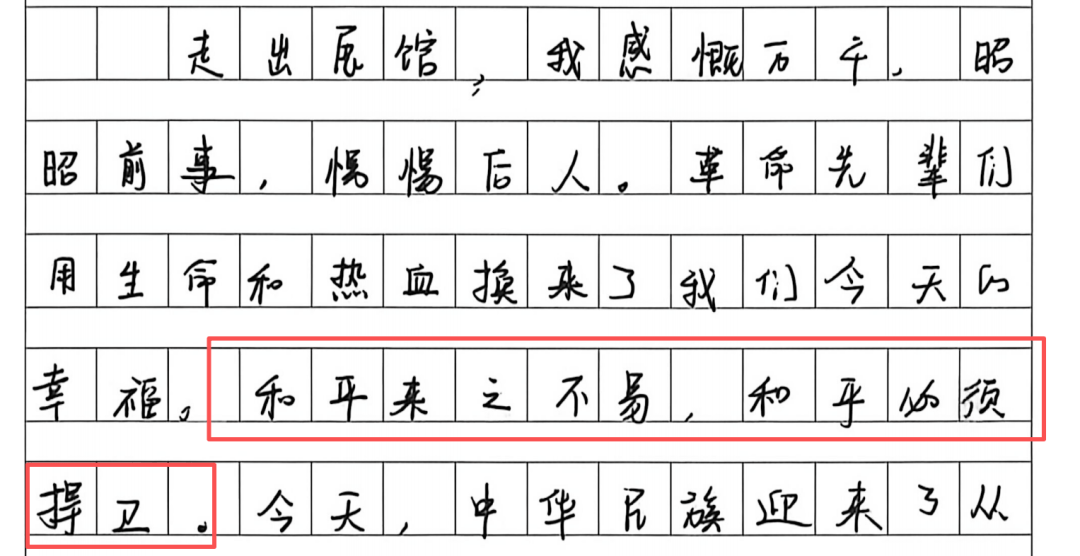 走出展馆，我感慨万千，昭
昭前事，惕惕后人。革命先辈们
用生命和热血换来了我们今天的
幸福。和平来之不易，和平必须
捍卫。今天，中华民族迎来了从